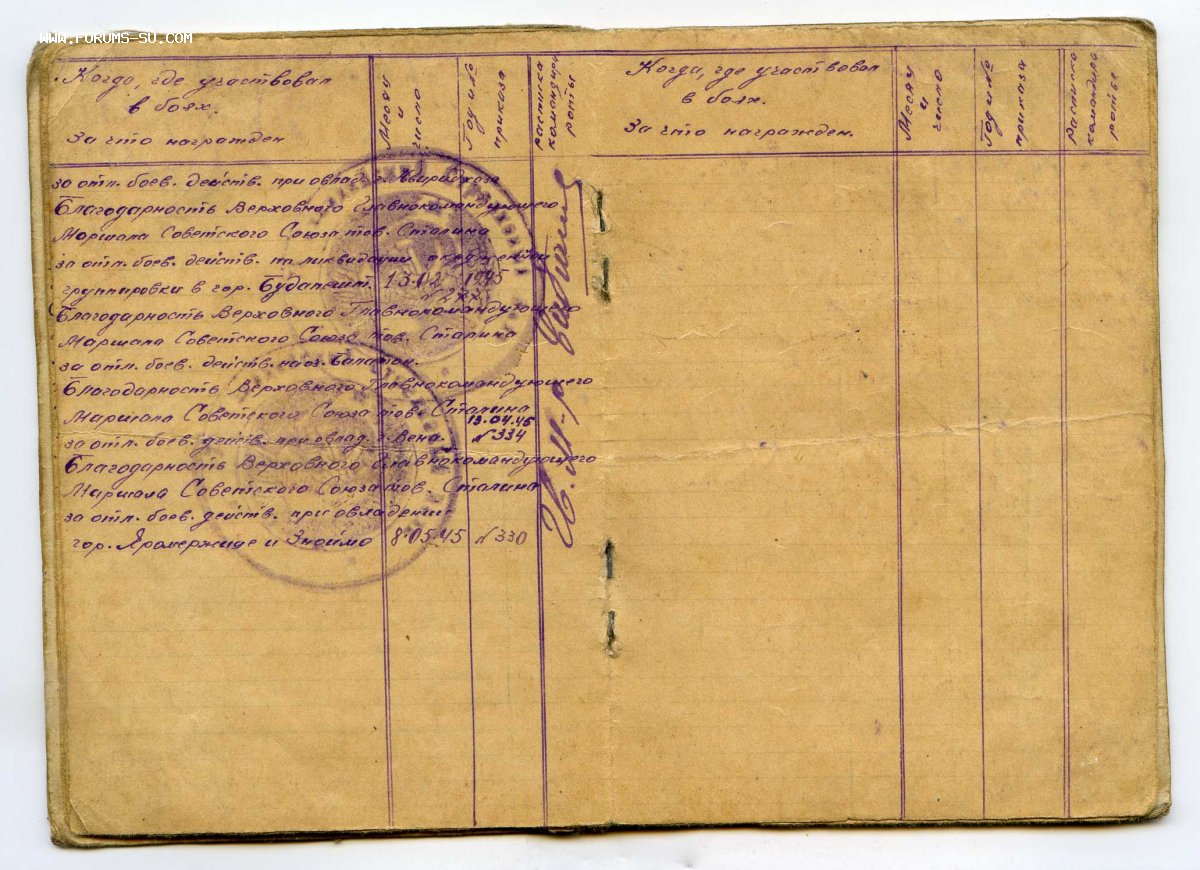 www.forums-su.com
Когда, где участвовал
в боях.
За что награжден
Месяц
и
число
Год и №
приказа
расписка
командира
роты
за отл. боев. действ. при овлад. г.
Благодарность Верховного Главнокомандующего
Маршала Советского Союза тов. Сталина
за отл. боев. действ. по ликвидации окружен.
группировки в гор. Будапешт. 1945
Благодарность Верховного Главнокомандующего
Маршала Советского Союза тов. Сталина
за отл. боев. действ. на оз. Балатон.
Благодарность Верховного Главнокомандующего
Маршала Советского Союза тов. Сталина
13.04.45
за отл. боев. действ. при овлад. г. Вена. №334
Благодарность Верховного Главнокомандующего
Маршала Советского Союза тов. Сталина
за отл. боев. действ. при овладении
гор. Яромержице и Зноймо 8.05.45 №330
Когда, где участвовал
в боях.
За что награжден.
Месяц
и
число
Год и №
приказа
Расписка
командира
роты